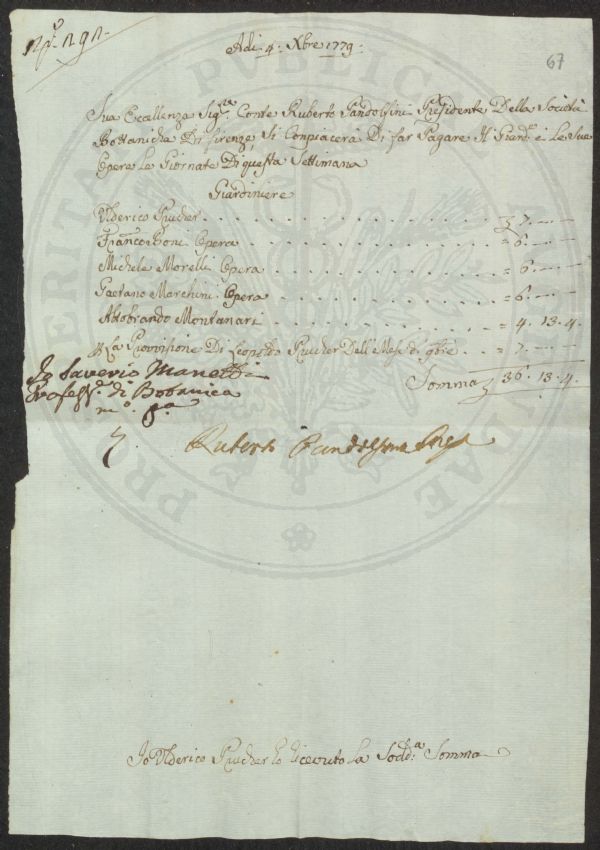 67
Adi 4. Xbre 1779.
Sua Eccellenza Sigre Conte Ruberto Pandolfini Presidente Della Società
Bottanicha Di firenze, Si Conpiacerà Di far Pagare Il Giard.e e Le Sue
Opere Le Giornate Di questa Settimana
Giardiniere
Ulderico Prucher = 7. — —
Franco Boni Opera = 6. — —
Michele Morelli Opera = 6. — —
Gaetano Marchini Opera = 6. — —
Aldobrando Montanari = 4. 13. 4.
La Provvisione Di Leopoldo Prucher Dell'Mese di 9bre = 7. — —
Somma 36. 13. 4
Io Saverio Manetti
Profess.e di Botanica
m.o p.a
Ruberto Pandolfini
Io Ulderico Prucher ho Ricevuto La Sodd.a Somma
PRO VERITATE
PVBLICAE